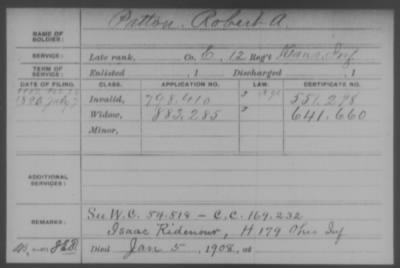 Patton, Robert A.
NAME OF SOLDIER:
SERVICE: Late rank, Co. E, 12 Reg't Kans. Inf
TERM OF SERVICE: Enlisted , 1 Discharged , 1
DATE OF FILING. CLASS. APPLICATION NO. LAW. CERTIFICATE NO.
Invalid, 798.410 551.278
1890 July 7 Widow, 883,285 641,660
Minor,
ADDITIONAL SERVICES:
REMARKS: See W.C. 54.818 - C.C. 169.232
Isaac Ridenour, H 179 Ohio Inf
Died Jan 5, 1908, at